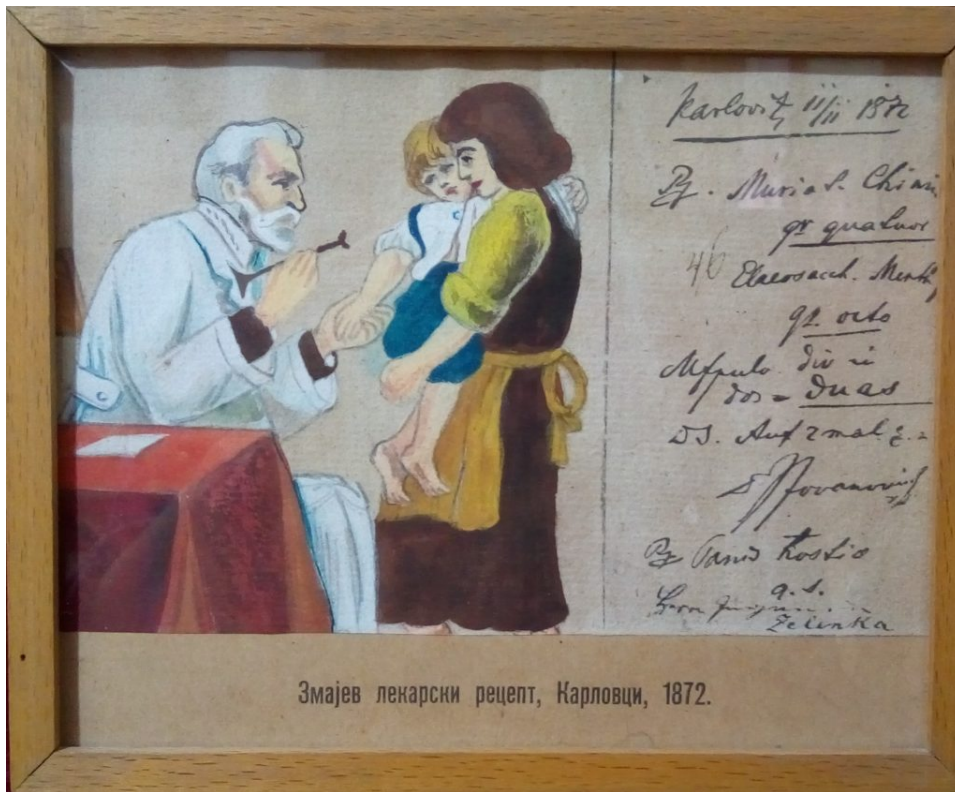 Karlovitz 11/11 1872
Rp. Muriat. Chinin
gr quatuor
46 Elaeosacch. Menth
gr. octo
Mfpulv div in
dos = duas
DS. Auf 2 mal
Jovanovich
Rp Panis Kostic
q.s.
Zelenka
Змајев лекарски рецепт, Карловци, 1872.